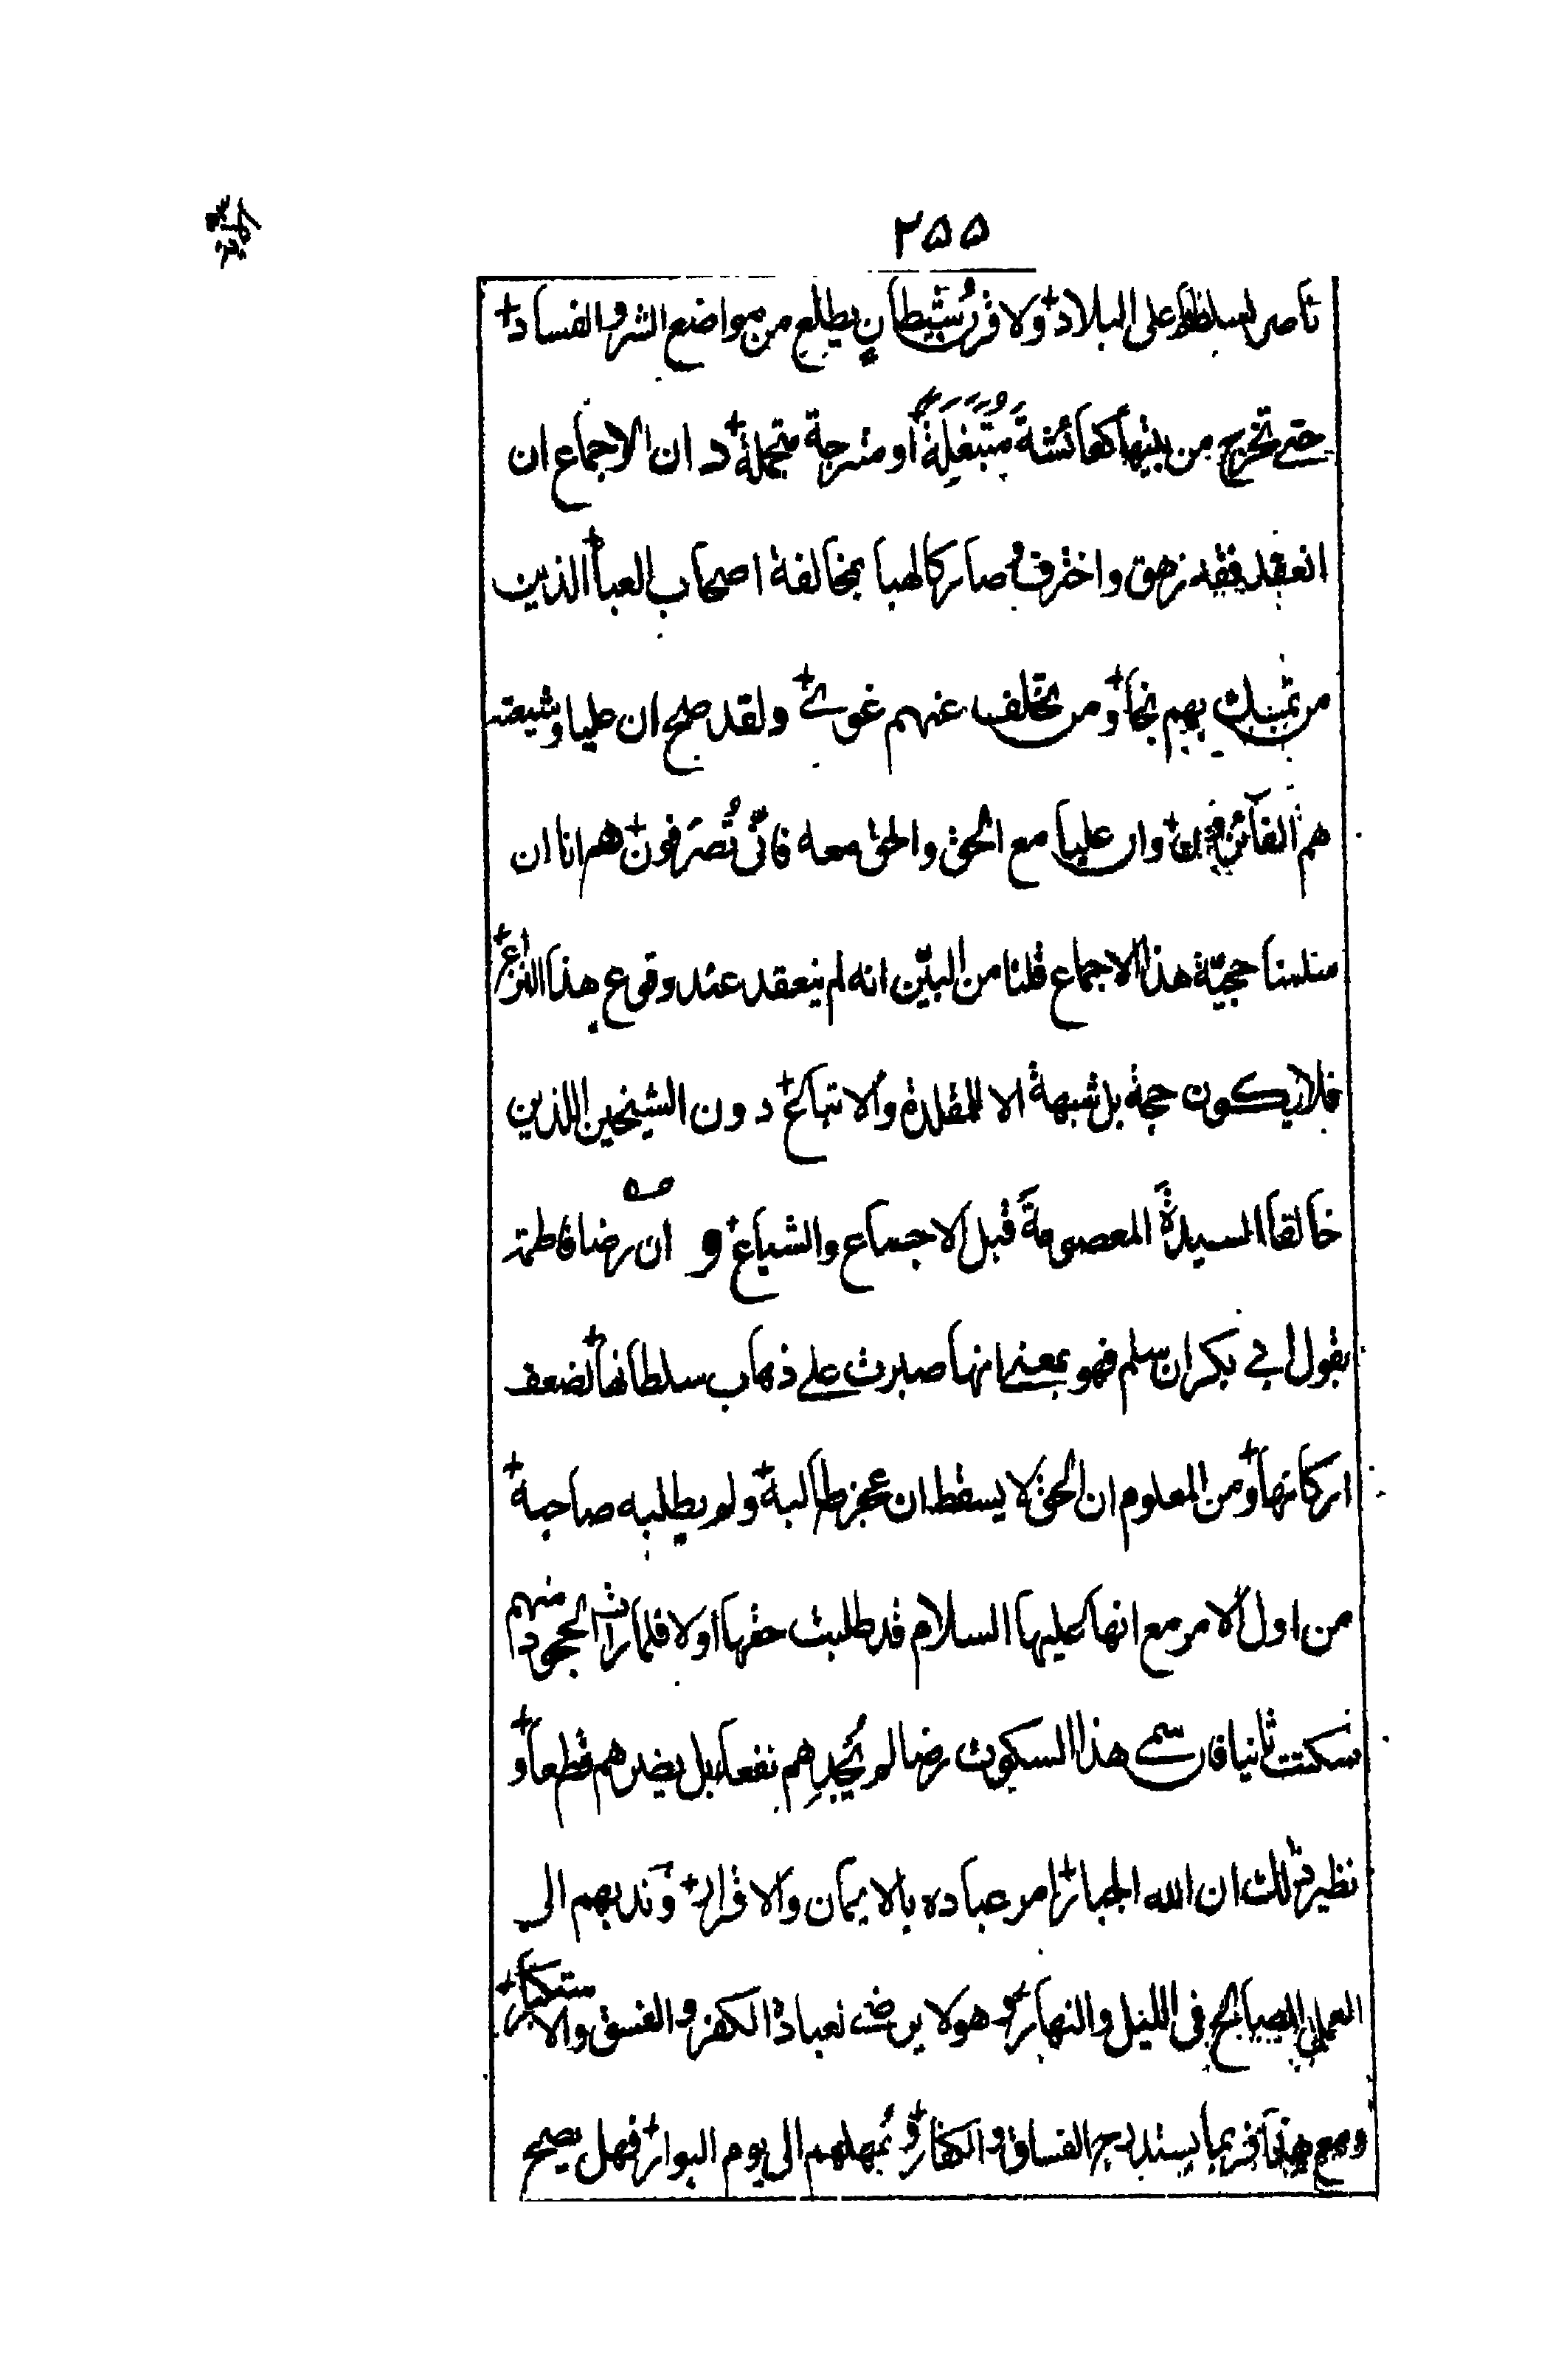 ٢٥٥
ناصر لسلطها على البلاد ولا قرن شيطانٍ يطلع من مواضع الشر والفساد
حتى تخرج من بيتها كعائشة مُتَبَغِّلَةً او متبرجة متجملة د ان الاجماع ان
انعقد فقد زهق واخترق وصار كالهبا بمخالفة اصحاب العبا الذين
من تمسك بهم نجا ومن تخلف عنهم غوى ولقد صلح ان عليا وشيعته
هم الفائزون وان عليا مع الحق والحق معه فانّى تُصرَفون هم انا ان
سلمنا حجيّة هذا الاجماع قلنا من البيّن انه لم ينعقد عند وقوع هذا النزاع
فلا يكون حجة بل شبهة الا للمقلدة والاتباع دون الشيخين اللذين
خالفا السيدةَ المعصومةَ قبل الاجماع والشياع و ان رضا فاطمة
بقول ابي بكر ان سلم فهو بمعنى انها صبرت على ذهاب سلطانها لضعف
اركانها ومن المعلوم ان الحق لا يسقط ان عجز طالبه ولم يطلبه صاحبه
من اول الامر مع انها عليها السلام قد طلبت حقها اولا فلما رات الجحود منهم
سكتت ثانيا فان سمى هذا السكوت رضا لم يُجدِهم نفعا بل يضرهم قطعا و
نظير ذلك ان الله الجبار امر عباده بالايمان والاقرار وندبهم الى
العمل الصالح في الليل والنهار وهو لا يرضى لعباده الكفر والفسق والاستكبار
ومع هذا فربما يستدرج الفساق والكفار ويُمهلهم الى يوم البوار فهل يصح